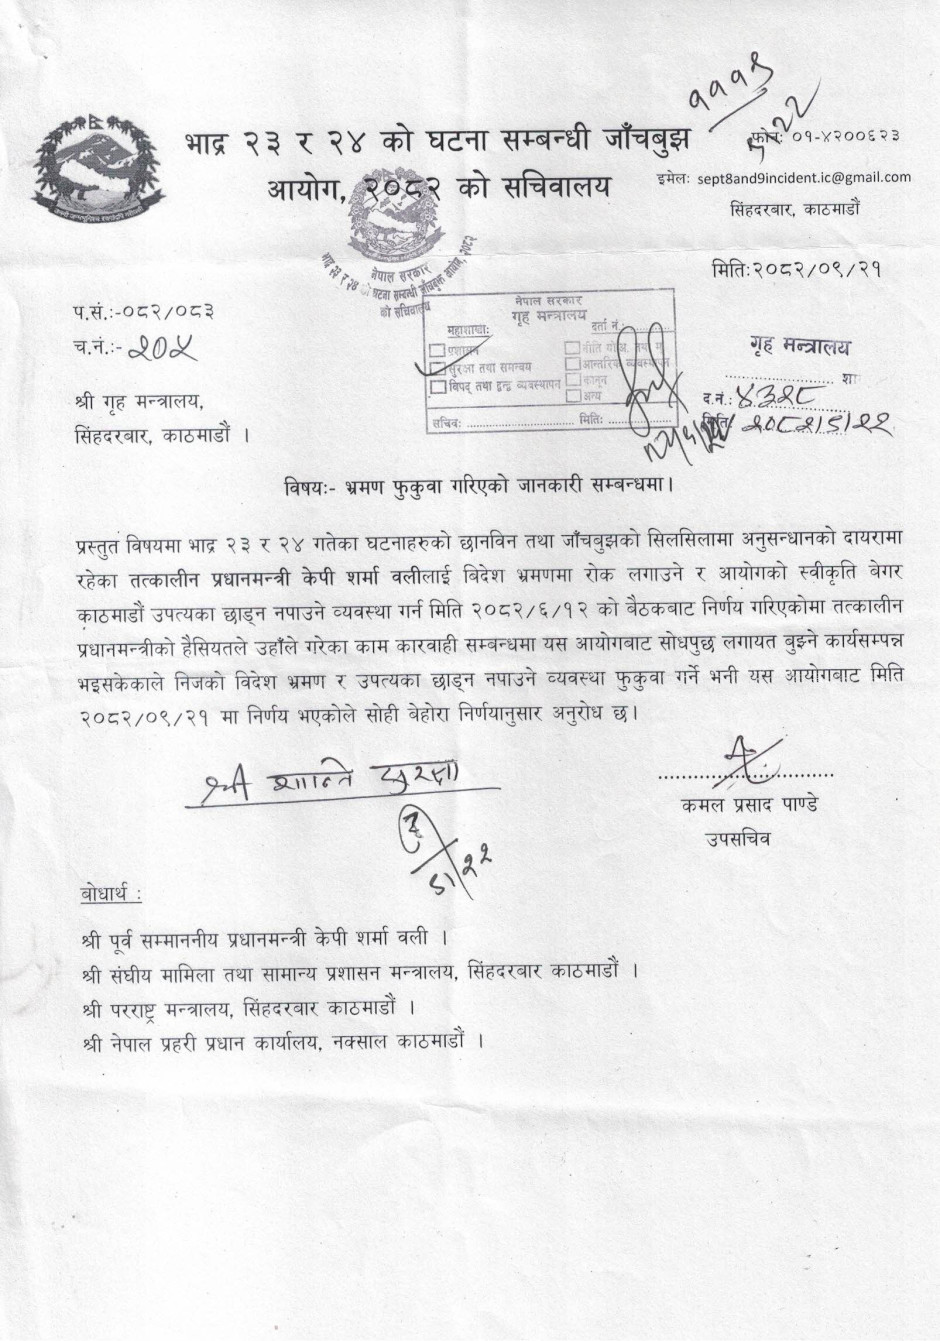 ११११
९/२२
भाद्र २३ र २४ को घटना सम्बन्धी जाँचबुझ
आयोग, २०८२ को सचिवालय
फोनः ०१-४२००६२३
इमेलः sept8and9incident.ic@gmail.com
सिंहदरबार, काठमाडौं
नेपाल सरकार
भाद्र २३ र २४ को घटना सम्बन्धी जाँचबुझ आयोग, २०८२
को सचिवालय
मितिः२०८२/०९/२१
प.सं.:-०८२/०८३
च.नं.:- २०५
नेपाल सरकार
गृह मन्त्रालय
महाशाखाः दर्ता नं.
प्रशासन
सुरक्षा तथा समन्वय
विपद् तथा द्वन्द्व व्यवस्थापन
आन्तरिक व्यवस्थापन
कानून
अन्य
सचिवः मितिः
गृह मन्त्रालय
शा
द.नं.: ४३२८
मितिः २०८२/९/२२
श्री गृह मन्त्रालय,
सिंहदरबार, काठमाडौं ।
विषयः- भ्रमण फुकुवा गरिएको जानकारी सम्बन्धमा।
प्रस्तुत विषयमा भाद्र २३ र २४ गतेका घटनाहरुको छानविन तथा जाँचबुझको सिलसिलामा अनुसन्धानको दायरामा
रहेका तत्कालीन प्रधानमन्त्री केपी शर्मा वलीलाई बिदेश भ्रमणमा रोक लगाउने र आयोगको स्वीकृति बेगर
काठमाडौं उपत्यका छाड्न नपाउने व्यवस्था गर्न मिति २०८२/६/१२ को बैठकबाट निर्णय गरिएकोमा तत्कालीन
प्रधानमन्त्रीको हैसियतले उहाँले गरेका काम कारवाही सम्बन्धमा यस आयोगबाट सोधपुछ लगायत बुझ्ने कार्यसम्पन्न
भइसकेकाले निजको विदेश भ्रमण र उपत्यका छाड्न नपाउने व्यवस्था फुकुवा गर्ने भनी यस आयोगबाट मिति
२०८२/०९/२१ मा निर्णय भएकोले सोही बेहोरा निर्णयानुसार अनुरोध छ।
श्री शान्ति सुरक्षा
९/२२
कमल प्रसाद पाण्डे
उपसचिव
बोधार्थ :
श्री पूर्व सम्माननीय प्रधानमन्त्री केपी शर्मा वली ।
श्री संघीय मामिला तथा सामान्य प्रशासन मन्त्रालय, सिंहदरबार काठमाडौं ।
श्री परराष्ट्र मन्त्रालय, सिंहदरबार काठमाडौं ।
श्री नेपाल प्रहरी प्रधान कार्यालय, नक्साल काठमाडौं ।